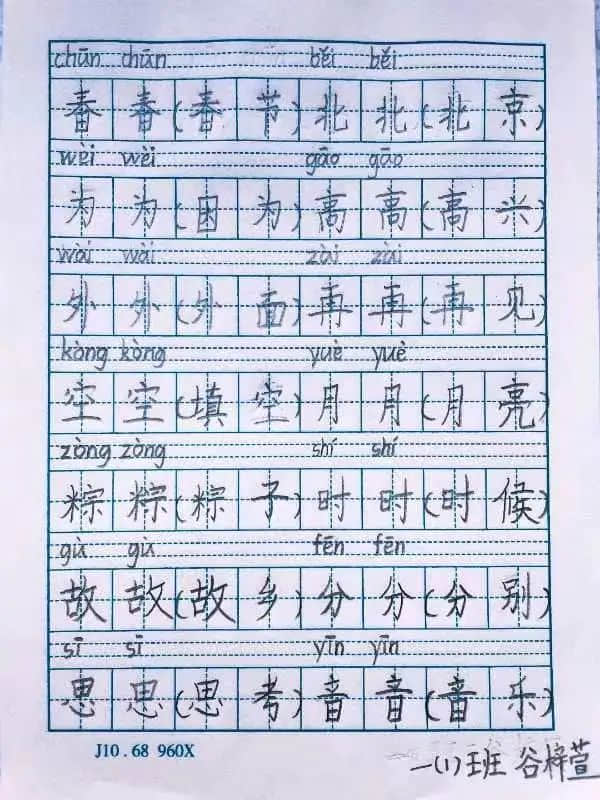 chūn chūn běi běi
春 春 (春 节) 北 北 (北 京)
wèi wèi gāo gāo
为 为 (因 为) 高 高 (高 兴)
wài wài zài zài
外 外 (外 面) 再 再 (再 见)
kòng kòng yuè yuè
空 空 (填 空) 月 月 (月 亮)
zòng zòng shí shí
粽 粽 (粽 子) 时 时 (时 候)
gù gù fēn fēn
故 故 (故 乡) 分 分 (分 别)
sī sī yīn yīn
思 思 (思 考) 音 音 (音 乐)
J10.68 960X
一(1)班 谷梓萱